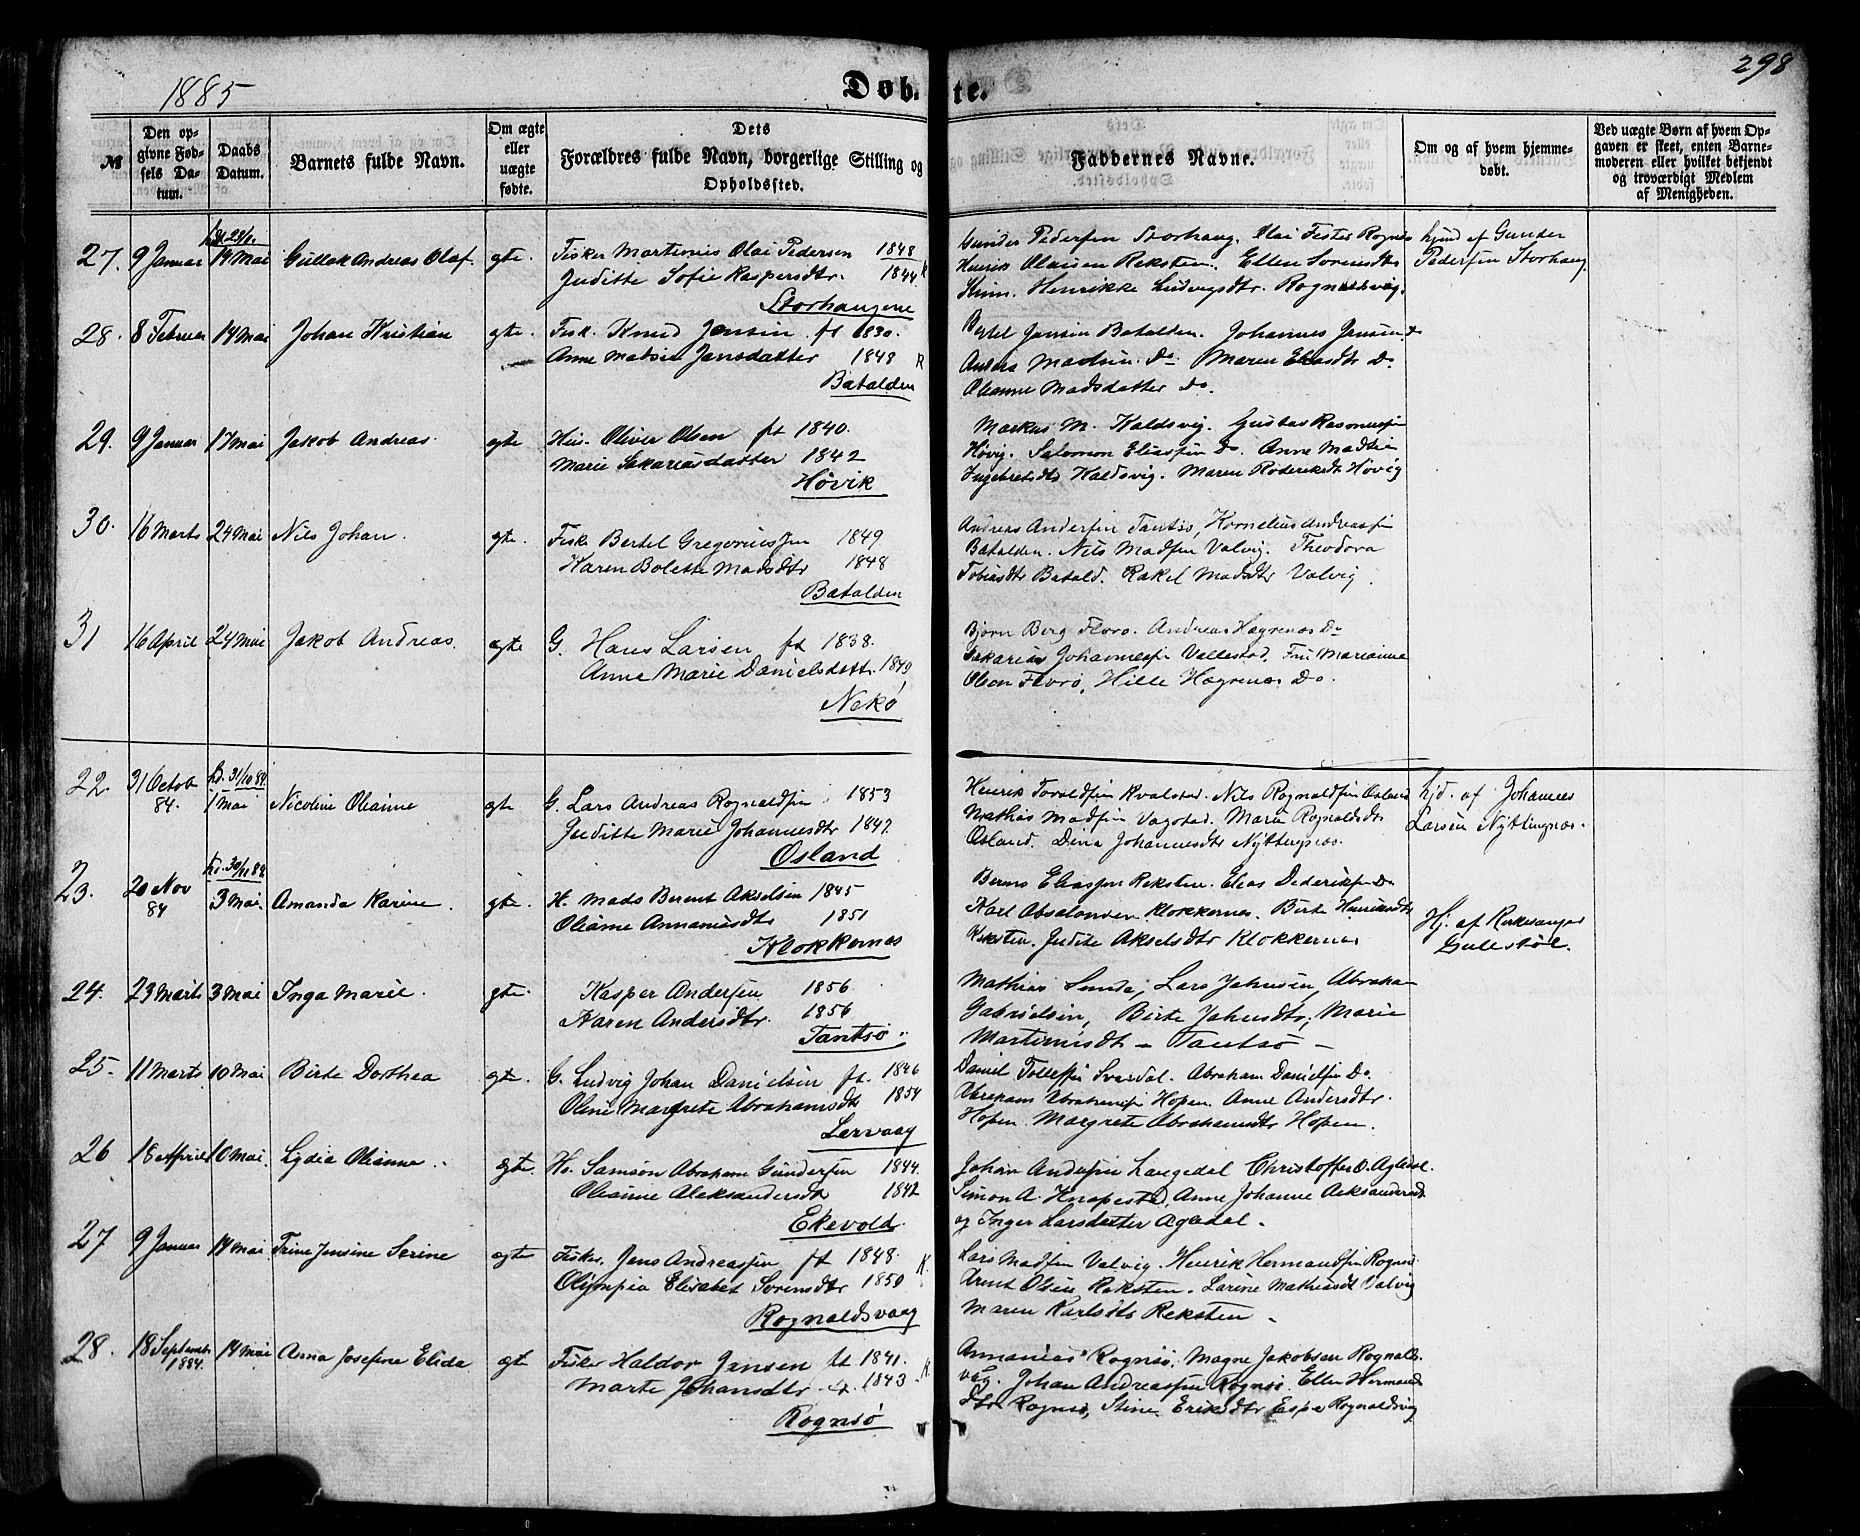 298
1885
Døbte.
№
Den opgivne Fødsels Datum.
Daabs Datum.
Barnets fulde Navn.
Om ægte eller uægte fødte.
Dets Forældres fulde Navn, borgerlige Stilling og Opholdssted.
Faddernes Navne.
Om og af hvem hjemmedøbt.
Ved uægte Børn af hvem Opgaven er skeet, enten Barnemoderen eller hvilket bekjendt og troværdigt Medlem af Menigheden.
27. 9 Januar 14 Mai Gullak Andreas Olaf. gte. Fisker Martinus Olai Pedersen 1848
Juditte Sofie Kaspersdtr. 1844
Storhaugene
Gunder Pedersen Storhaug. Olai Fester Rognø
Henrik Olaisen Reksten. Ellen Sorensdtr
Kinn. Henrikke Ludvigsdtr. Rognaldsvåg.
hjmd af Gunder
Pedersen Storhaug
28. 8 Februar 14 Mai Johan Kristian gte. Fisk. Knud Jensen ft 1830.
Anne Madsin Jensdatter 1848
Batalden
Bertel Jensen Batalden. Johannes Jensen Do
Anders Madsen. Do. Maren Eliasdtr Do
Olianne Madsdatter Do.
29. 9 Januar 17 Mai Jakob Andreas. gte Hus. Oliver Olsen ft 1840.
Marie Sakariasdatter 1842
Høvik
Markus M. Kaldsvig. Gustav Rasmussen
Høvig. Salomon Eliassen Do. Anne Madsin
Ingebretsdtr Kaldsvig. Maren Roderiksdtr Høvig
30. 16 Marts 24 Mai Nils Johan. gte. Fisk Bertel Gregoriussen 1849
Karen Bolette Madsdtr 1848
Batalden
Andreas Andersen Tantsø, Kornelius Andreassen
Batalden. Nils Madsen Valvig. Theodora
Tobiasdtr Batald. Rakel Madsdtr Valvig.
31 16 April 24 Mai Jakob Andreas. ægte G. Hans Larsen ft 1838.
Anna Marie Danielsdatt. 1849
Nekø
Bjørn Berg Florø. Andreas Hægrenæs Do
Sakarias Johannessen Vallestad. Fru Marianne
Olsen Florø, Hille Hægrenæs Do.
22. 31 Octob 84. hd. 31/10 84. 1 Mai Nicoline Olianne gte G. Lars Andreas Rognaldsen 1853
Juditte Marie Johannesdtr 1847.
Osland
Henrik Toraldsen Kvalstad. Nils Rognaldsen Osland
Mathias Madsen Vagstad. Marie Rognaldsdtr
Osland. Dina Johannesdtr Nyttingnæs.
hjd. af Johannes
Larsen Nyttingnæs.
23. 20 Nov 84 hd. 30/11 84. 3 Mai. Amanda Karine. gte. H. Mads Berent Akselsen 1845
Olianne Annaniasdtr 1851
Klokkernes
Berns Eliassen Reksten. Elias Dideriksen Do
Karl Absalonsen Klokkernes. Birte Henriksdtr
Reksten. Judite Akselsdtr Klokkernes
Hj. af Kirkesanger
Gulestøl.
24. 23 Marts 3 Mai Inga Marie. gte. Kasper Andersen 1856.
Karen Andersdtr. 1856
Tantsø
Mathias Sunde, Lars Jahnsen, Abraha-
Gabrielsen, Birte Jahnsdtr, Marie
Martinusdtr – Tantsø –
25. 11 Marts 10 Mai Birte Dorthea gte. G. Ludvig Johan Danielsen ft. 1846
Oline Margrete Abrahamsdtr 1854
Lervaag
Daniel Tollefsen Svardal. Abraham Danielsen Do.
Abraham Abrahamsen Hopen. Anne Andersdtr.
Hopen. Margrete Abrahamsdtr Hopen.
26 18 April 10 Mai. Lydia Olianne. ægte. H. Samson Abraham Gundersen 1844.
Olianne Aleksandersdtr 1842
Ekevold
Johan Andersen Langedal Christoffer O. Agledal.
Simon A. Knapestad, Anne Johanne Aleksandersdtr
og Inger Larsdatter Agledal.
27 9 Januar 14 Mai Trine Jensine Serine ægte Fisker. Jens Andreassen ft 1848. K.
Olympia Elisabet Sorensdtr 1850
Rognaldsvaag
Lars Madsen Valvig. Henrik Hermandsen Rognø.
Arnt Olsen Reksten. Larine Mathiasdt Valvig
Maren Karlsdtr Reksten.
28. 18 Septembr 1884. 14 Mai Anna Josefine Elida gt. Fisker Haldor Jensen ft 1841. K.
Marte Johansdtr. 1843
Rognsø
Annanias Rognsø. Magne Jakobsen Rognalds-
våg. Johan Andreassen Rognsø. Ellen Hermands-
dtr. Rognsø, Stine Eriksdtr Espe Rognaldsvåg